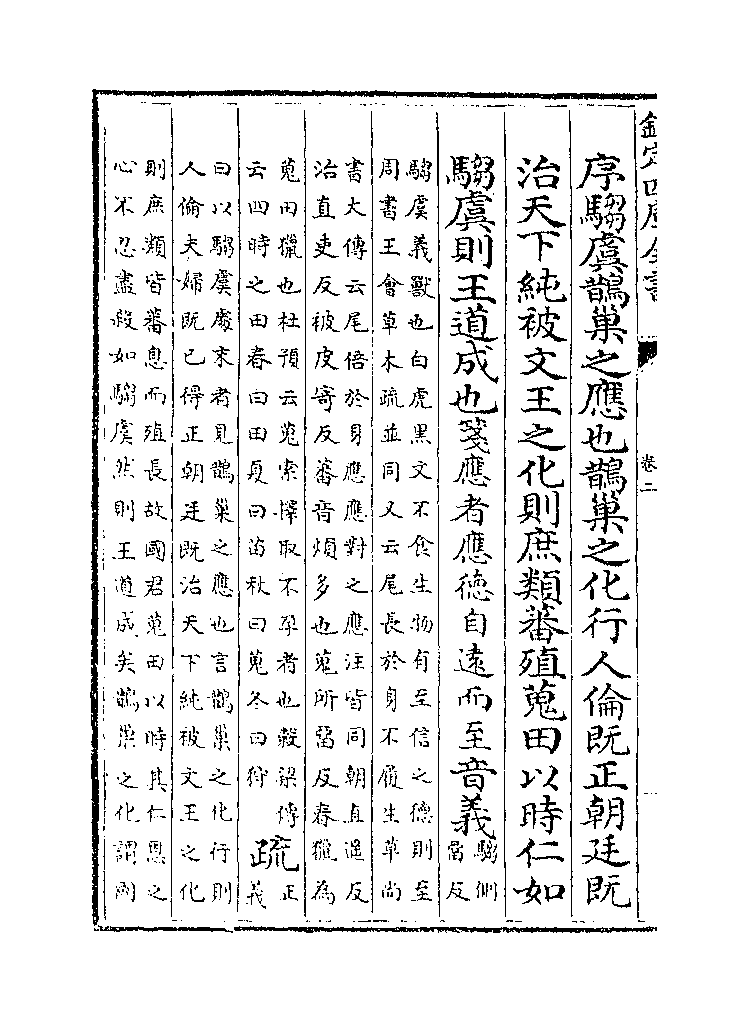 欽定四庫全書 卷二
序騶虞鵲巢之應也鵲巢之化行人倫既正朝廷既
治天下純被文王之化則庶類蕃殖蒐田以時仁如
騶虞則王道成也箋應者應德自遠而至音義騶側
畱反
騶虞義獸也白虎黑文不食生物有至信之德則至
周書王會草木疏並同又云尾長於身不履生草尚
書大傳云尾倍於身應應對之應注皆同朝直遥反
治直吏反被皮寄反蕃音煩多也蒐所畱反春獵為
蒐田獵也杜預云蒐索擇取不孕者也穀梁傳
云四時之田春曰田夏曰苗秋曰蒐冬曰狩
疏正
義
曰以騶虞處末者見鵲巢之應也言鵲巢之化行則
人倫夫婦既已得正朝廷既治天下純被文王之化
則庶類皆蕃息而殖長故國君蒐田以時其仁恩之
心不忍盡殺如騶虞然則王道成矣鵲巢之化謂